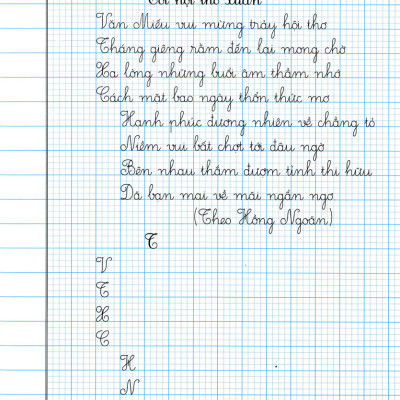 hội thơ Xuân
Văn Miếu vui mừng trảy hội thơ
Tháng giêng rằm đến lại mong chờ
Xa lòng những buổi âm thầm nhớ
Cách mặt bao ngày thổn thức mơ
Hạnh phúc đương nhiên về chẳng tỏ
Niềm vui bất chợt tới đâu ngờ
Bên nhau thắm đượm tình thi hữu
Dã bạn mai về mãi ngẩn ngơ
(Theo Hồng Ngoãn)
T
V
T
X
C
H
N